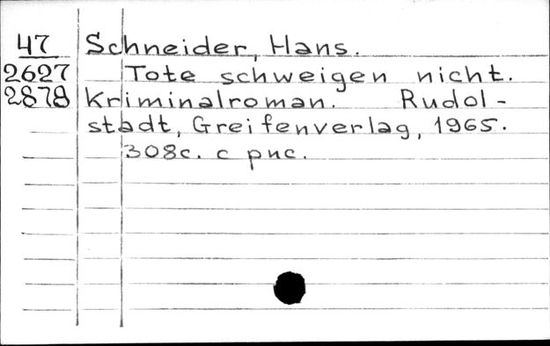 47 Schneider, Hans.
2627 Tote schweigen nicht.
2878 Kriminalroman. Rudol-
stadt, Greifenverlag, 1965.
308с. с рис.